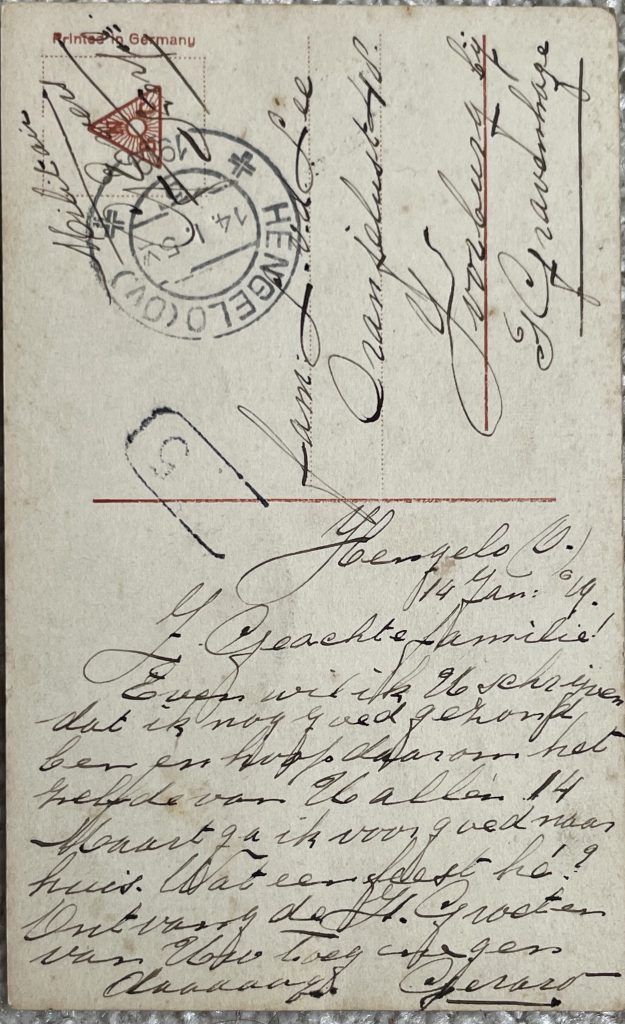 Printed in Germany
Militair
HENGELO (OV)
14. 1. 5
19
5
Fam.
Oranjelust 40.
Voorburg bij
's Gravenhage
Hengelo (O.)
14 Jan: '19.
Z. Geachte familie!
Even wil ik U schrijven
dat ik nog goed gezond
ben en hoop daarom het
zelfde van U allen 14
Maart ga ik voor goed naar
huis. Wat een feest hé?
Ontvang de H. Groeten
van Uw Toegenegen
daaaaag. Gerard